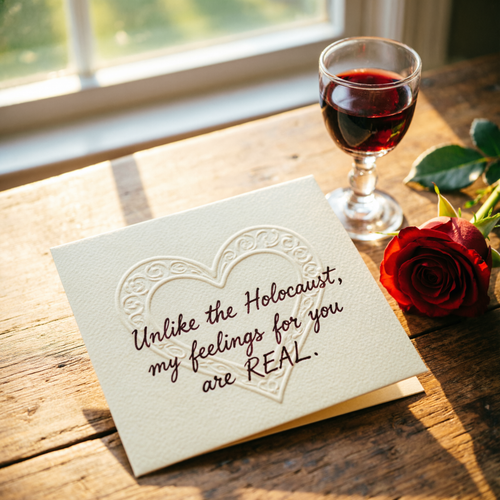 Unlike the Holocaust,
my feelings for you
are REAL.